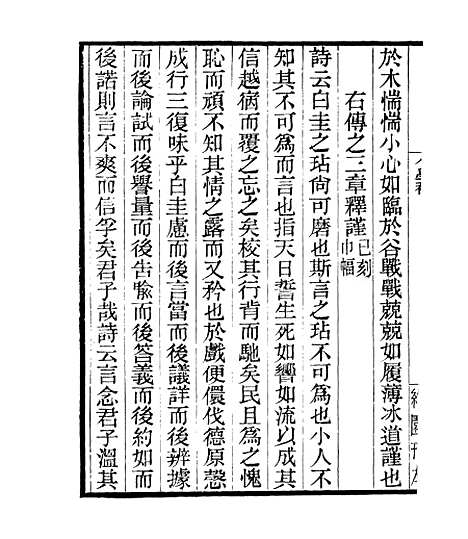 於木惴惴小心如臨於谷戰戰兢兢如履薄冰道謹也
右傳之三章釋謹已刻巾幅
詩云白圭之玷尚可磨也斯言之玷不可為也小人不
知其不可為而言也指天日誓生死如響如流以成其
信越宿而覆之忘之矣校其行背而馳矣民且為之愧
恥而頑不知其情之露而又矜也於戲便儇伐德原愨
成行三復味乎白圭慮而後言當而後議詳而後辨據
而後論試而後譽量而後告喩而後答義而後約如而
後諾則言不爽而信孚矣君子哉詩云言念君子溫其